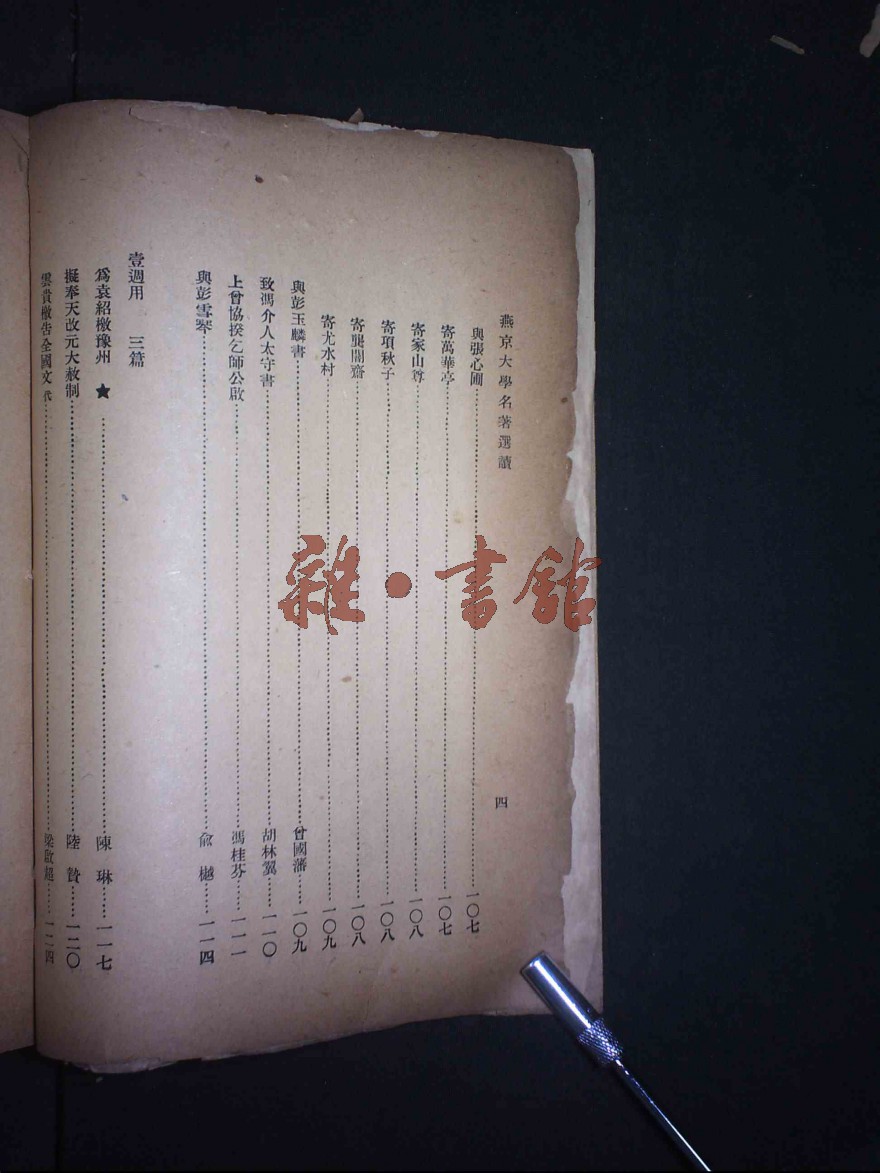 燕京大學名著選讀 四
與張心圃 一〇七
寄萬華亭 一〇七
寄家山尊 一〇八
寄項秋子 一〇八
寄龔闇齋 一〇八
寄尤水村 一〇九
與彭玉麟書 曾國藩 一〇九
致馮介人太守書 胡林翼 一一〇
上曾協揆乞師公啟 馮桂芬 一一一
與彭雪琴 俞樾 一一四
壹週用 三篇
爲袁紹檄豫州 ★ 陳琳 一一七
擬奉天改元大赦制 陸贄 一二〇
雲貴檄告全國文 代 梁啟超 一二四
雜·書館